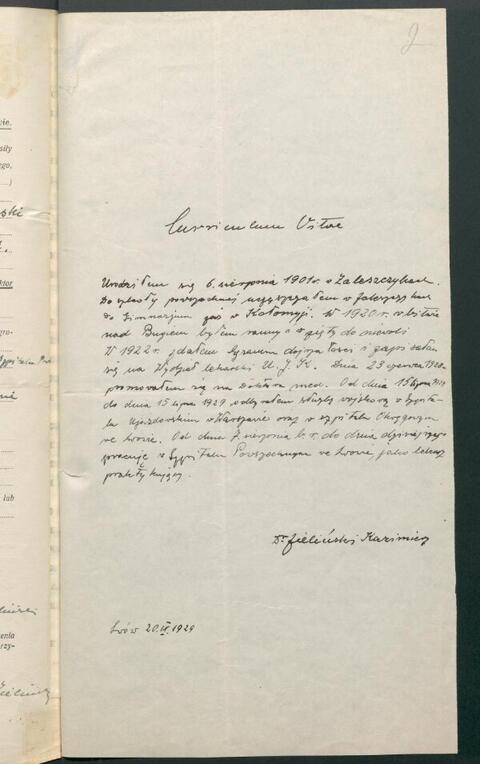 2
Curriculum Vitae
Urodziłem się 6. sierpnia 1901 r. w Zaleszczykach.
Do szkoły powszechnej uczęszczałem w
do Gimnazjum zaś w Kołomyji. W 1920 r. w bitwie
nad Bugiem byłem ranny i wzięty do niewoli
W 1922 r. zdałem egzamin dojrzałości i zapisałem
się na Wydział lekarski U. J. K. Dnia 23 czerwca 1928
promowałem się na Doktora med. Od dnia 15 lipca
do dnia 15 lipca 1929 odbywałem służbę wojskową w Szpita-
lu Ujazdowskim w Warszawie oraz w szpitalu Okręgowym
we Lwowie. Od dnia 7. sierpnia b. r. do dnia dzisiejszego
pracuję w Szpitalu Powszechnym we Lwowie, jako lekarz
praktykujący.
Dr Zieliński Kazimierz
Lwów 20.IX.1929